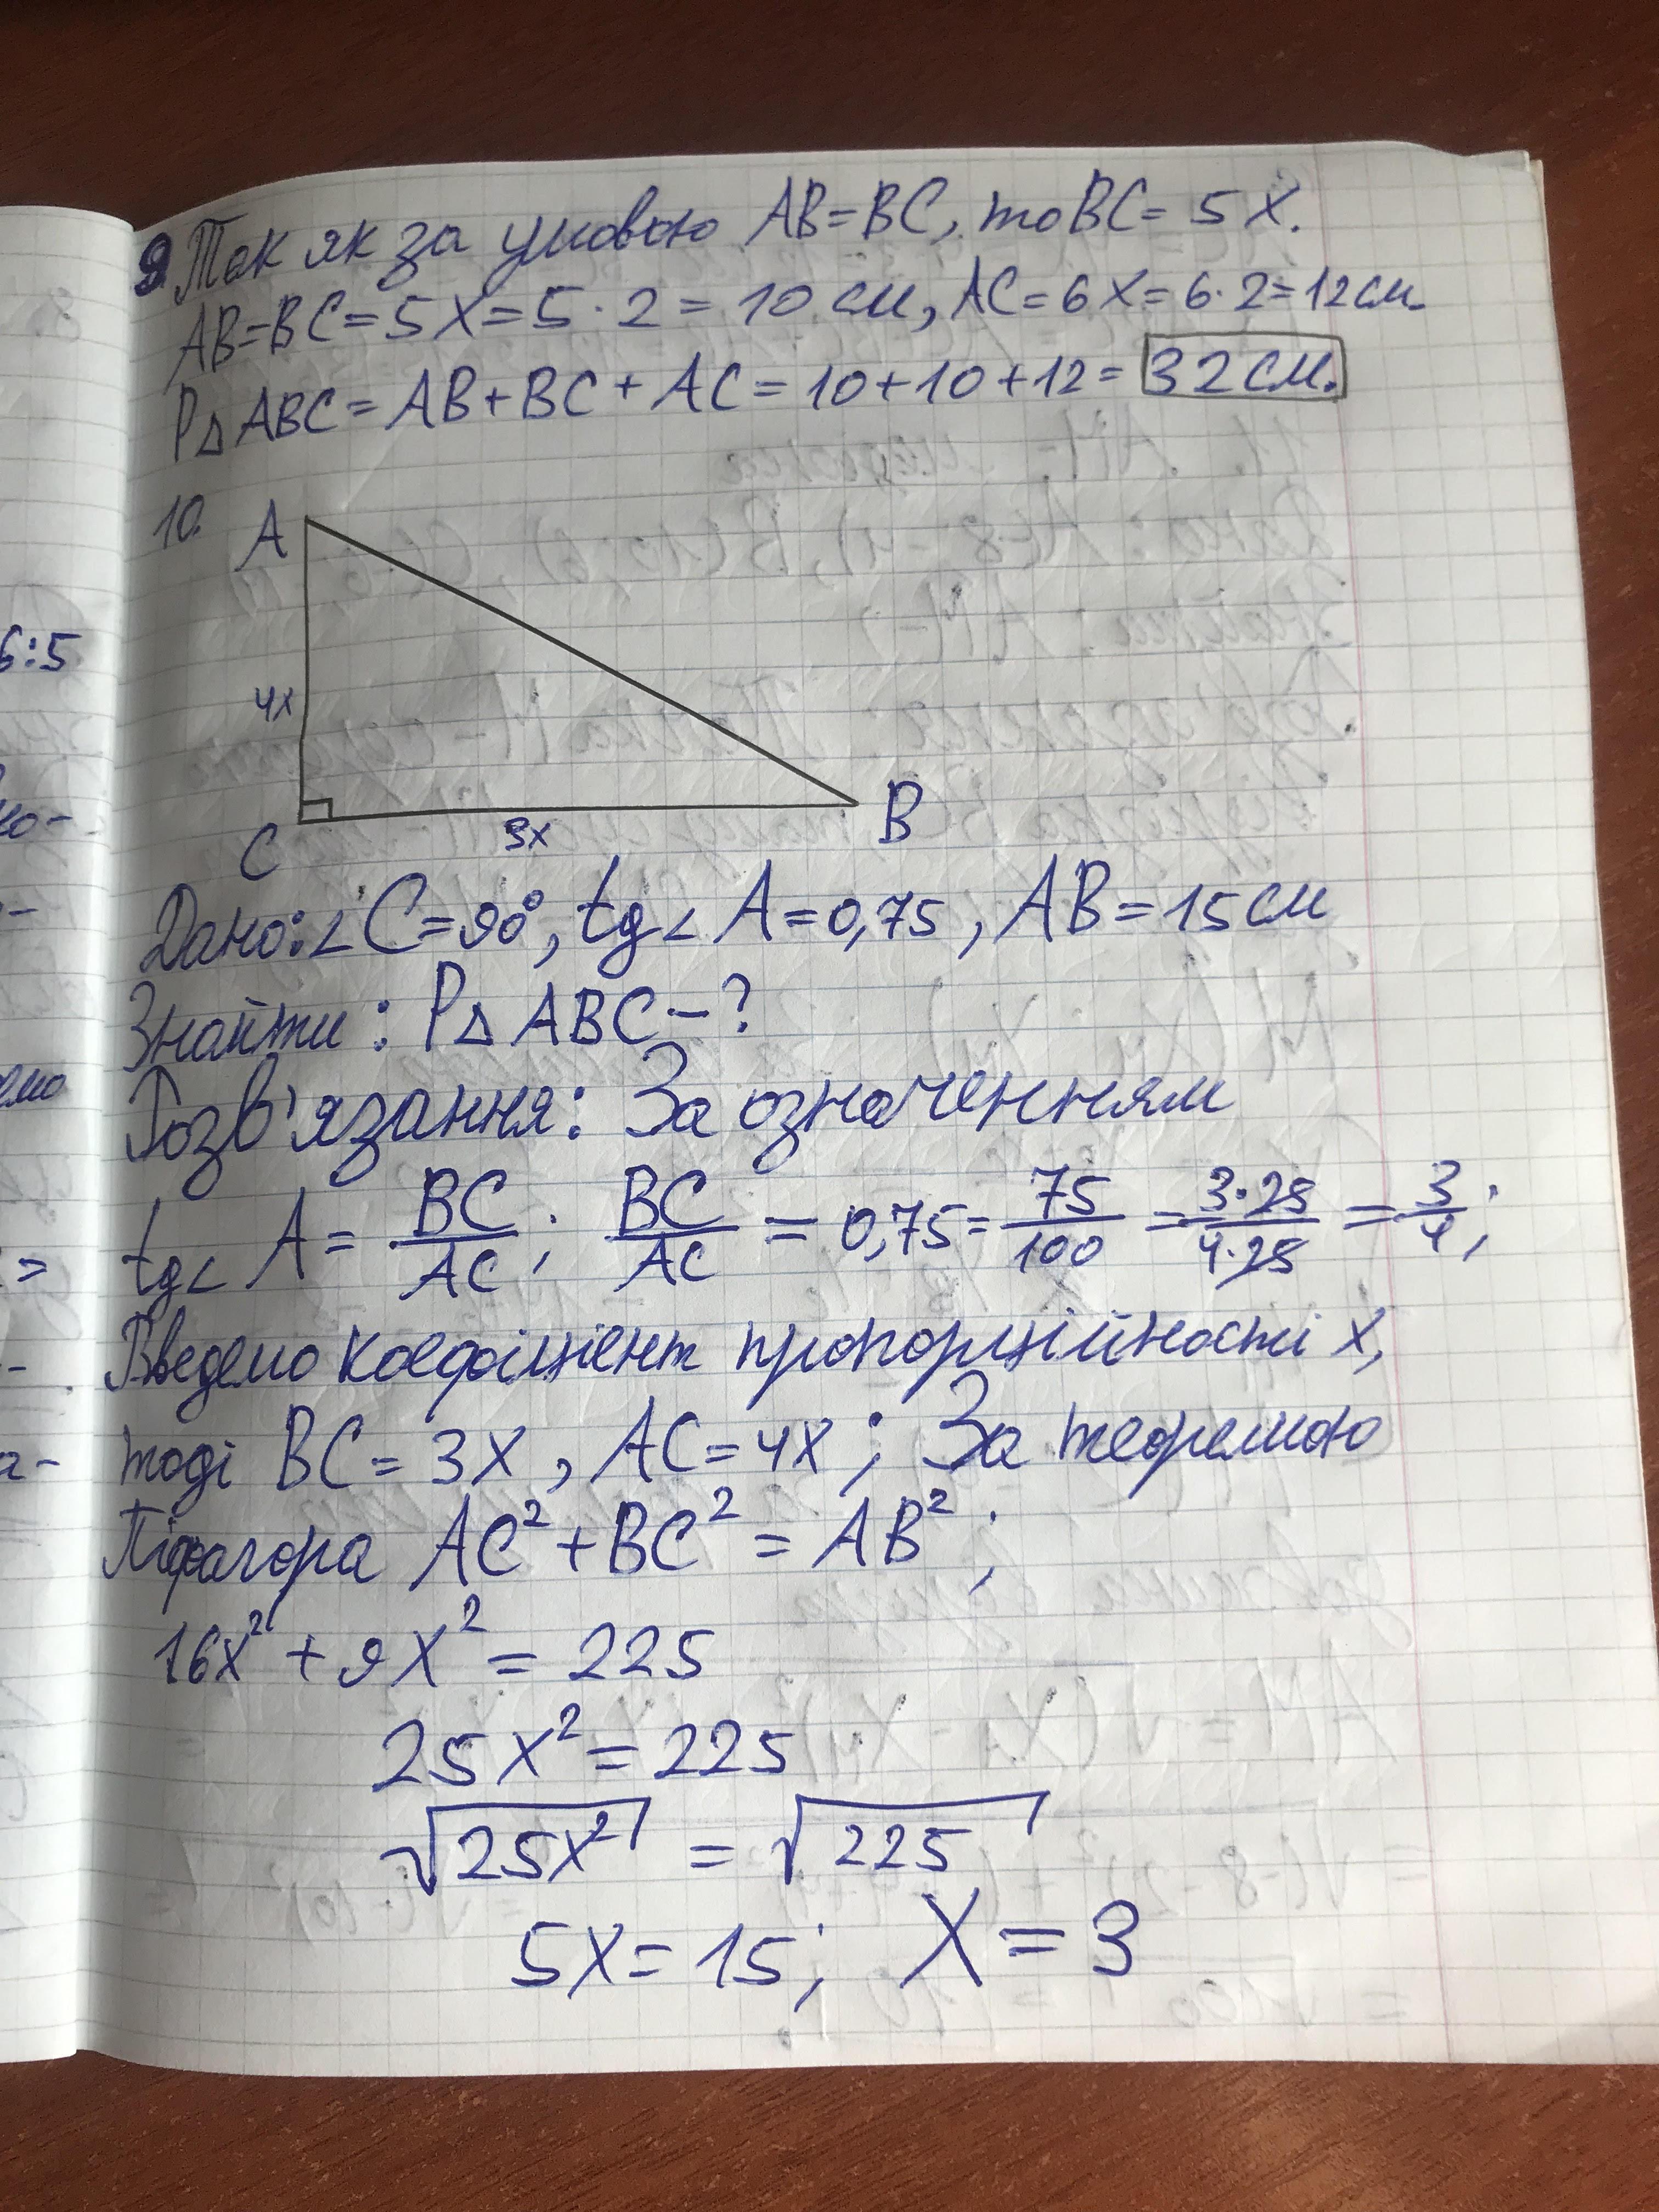 9. Так як за умовою AB=BC, то BC= 5x.
AB=BC=5x=5·2=10 см, AC=6x=6·2=12см.
P△ABC=AB+BC+AC=10+10+12=32см.
10.
A
6:5
4x
C
3x
B
Дано:∠C=90°, tg∠A=0,75, AB=15см
Знайти: P△ABC-?
Розв'язання: За означенням
tg∠A=BC/AC; BC/AC=0,75=75/100=3·25/4·25=3/4;
Введемо коефіцієнт пропорційності x,
тоді BC=3x, AC=4x; За теоремою
Піфагора AC²+BC²=AB²;
16x²+9x²=225
25x²=225
√25x²=√225
5x=15; x=3